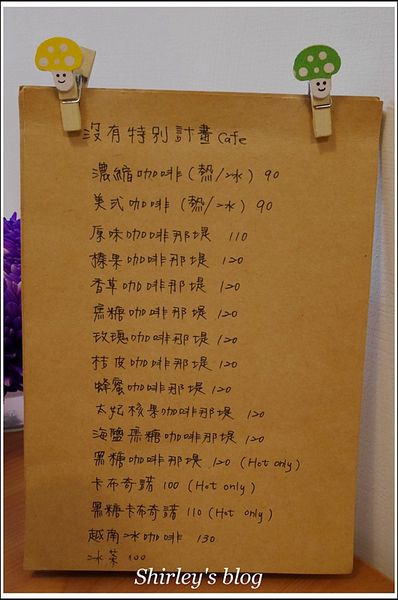 沒有特別計畫 Cafe
濃縮咖啡 (熱/冰) 90
美式咖啡 (熱/冰) 90
原味咖啡那堤 110
榛果咖啡那堤 120
香草咖啡那堤 120
焦糖咖啡那堤 120
玫瑰咖啡那堤 120
桔皮咖啡那堤 120
蜂蜜咖啡那堤 120
太妃核果咖啡那堤 120
海鹽焦糖咖啡那堤 120
黑糖咖啡那堤 120 (Hot only)
卡布奇諾 100 (Hot only)
黑糖卡布奇諾 110 (Hot only)
越南冰咖啡 130
冰茶 100
Shirley's blog